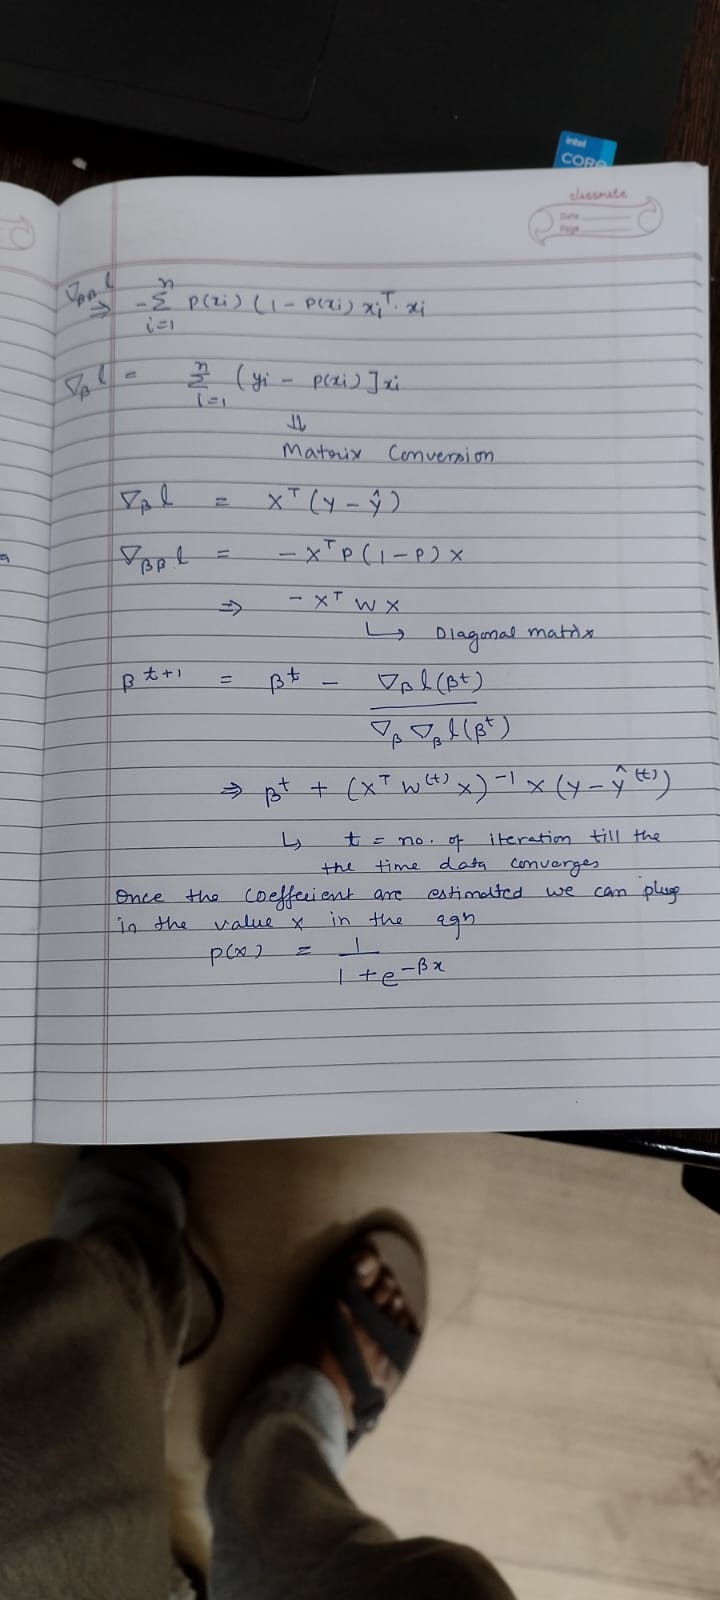 intel
CORE
classmate
Date
Page
∇ββ l
⇒ - Σ_{i=1}^{n} p(xi) (1 - p(xi) xi^T. xi
∇β l = Σ_{i=1}^{n} (yi - p(xi)] xi
⇓
Matrix Conversion
∇β l = X^T (Y - ŷ)
∇ββ l = - X^T P (1 - P) X
⇒ - X^T W X
↳ Diagonal matrix
β^{t+1} = β^t - ∇β l(β^t) / ∇β ∇β l(β^t)
⇒ β^t + (X^T W^(t) X)^{-1} X (Y - ŷ^(t))
↳ t = no. of iteration till the
the time data converges
Once the coeffecient are estimated we can plug
in the value x in the eqn
p(x) = 1 / 1 + e^{-βx}